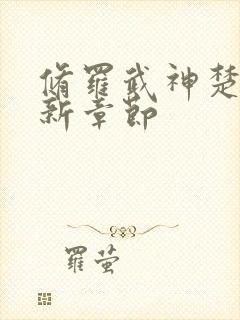 脩羅武神楚
新章節
羅螢